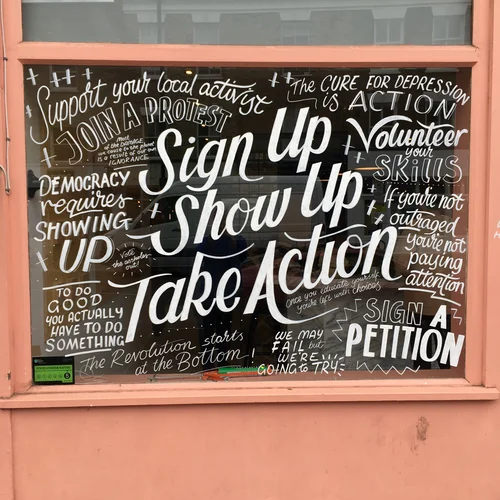 Support your local activist
JOIN A PROTEST
most
of the DAMAGE
we cause to the planet
is a result of our own
IGNORANCE
DEMOCRACY
requires
SHOWING
UP
Vote
the assholes
out!
TO DO
GOOD
YOU ACTUALLY
HAVE TO DO
SOMETHING
Sign Up
Show Up
Take Action
The CURE FOR DEPRESSION
is ACTION
Volunteer
your
SKILLS
If you're not
outraged
you're not
paying
attention
Once you educate yourself
you're left with choices
SIGN A
PETITION
The Revolution starts
at the Bottom!
WE MAY
FAIL but
WE'RE
GOING to TRY